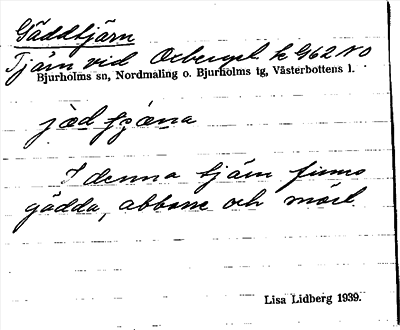 Gäddtjärn
Tjärn vid Oxberget k G62 NO
Bjurholms sn, Nordmaling o. Bjurholms tg, Västerbottens l.
I denna tjärn finns
gädda, abborre och mört.
Lisa Lidberg 1939.